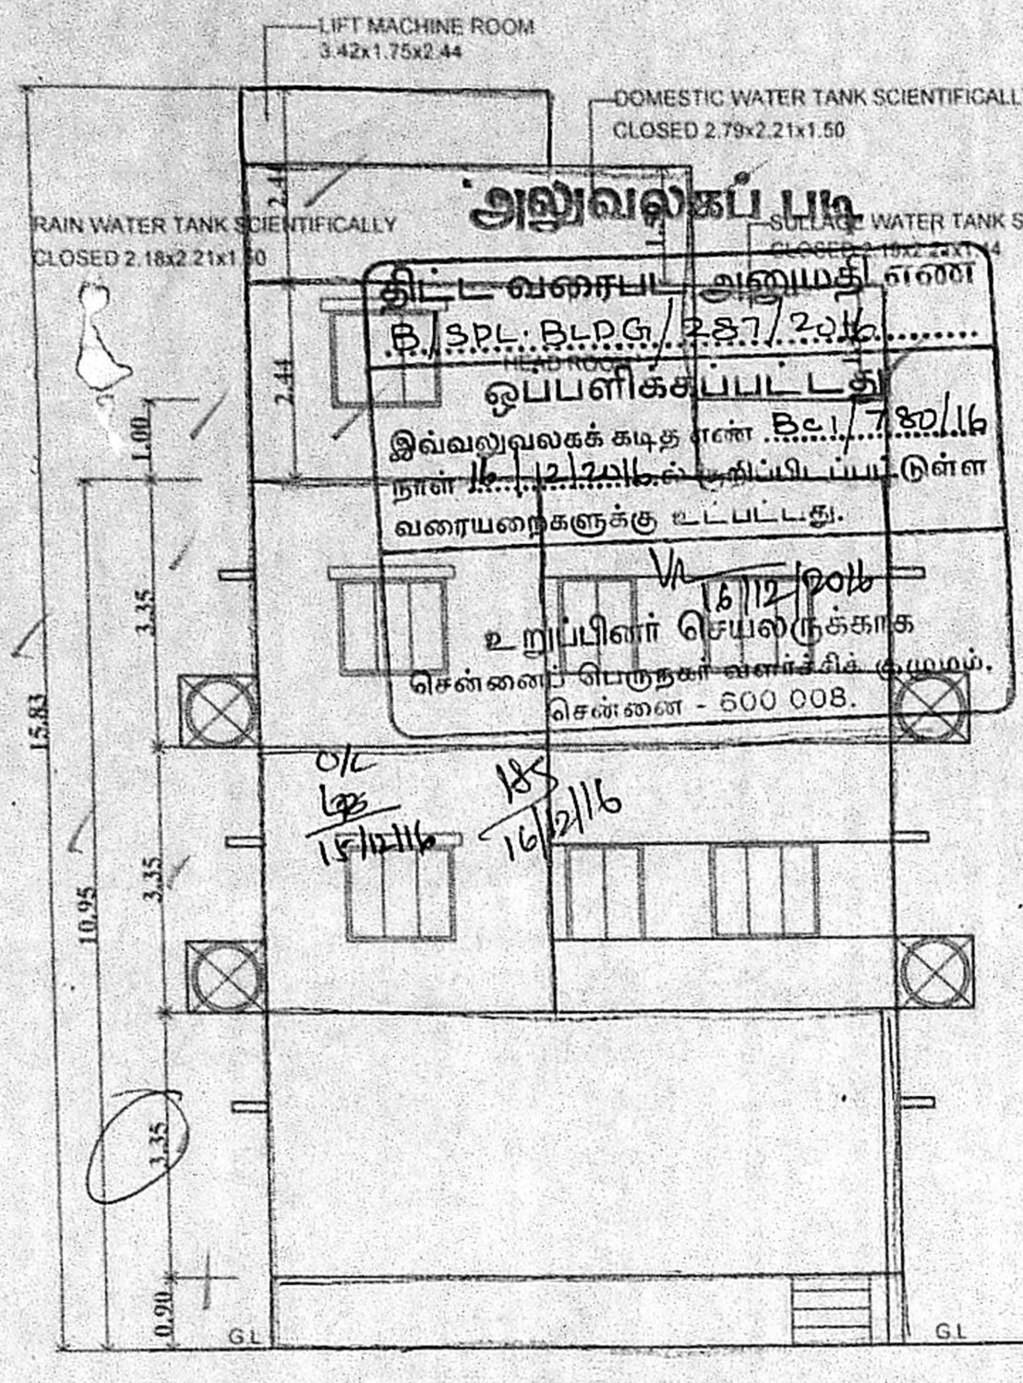 LIFT MACHINE ROOM
3.42x1.75x2.44
DOMESTIC WATER TANK SCIENTIFICALL
CLOSED 2.79x2.21x1.50
2.44
அலுவலகப் படி
RAIN WATER TANK SCIENTIFICALLY
CLOSED 2.18x2.21x1.50
SULLAGE WATER TANK S
திட்ட வரைபட அனுமதி எண்
B/SPL. BLDG/287/2016
HEAD ROOM
2.44
ஒப்பளிக்கப்பட்டது
இவ்வலுவலகக் கடித எண் BC1/780/16
1.00
நாள் 16/12/2016 ல் குறிப்பிடப்பட்டுள்ள
வரையறைகளுக்கு உட்பட்டது.
16/12/2016
3.35
உறுப்பினர் செயலருக்காக
சென்னைப் பெருநகர் வளர்ச்சிக் குழுமம்.
சென்னை - 600 008.
15.83
O/C
15/12/16
16/12/16
3.35
10.95
3.35
0.90
G.L
G.L